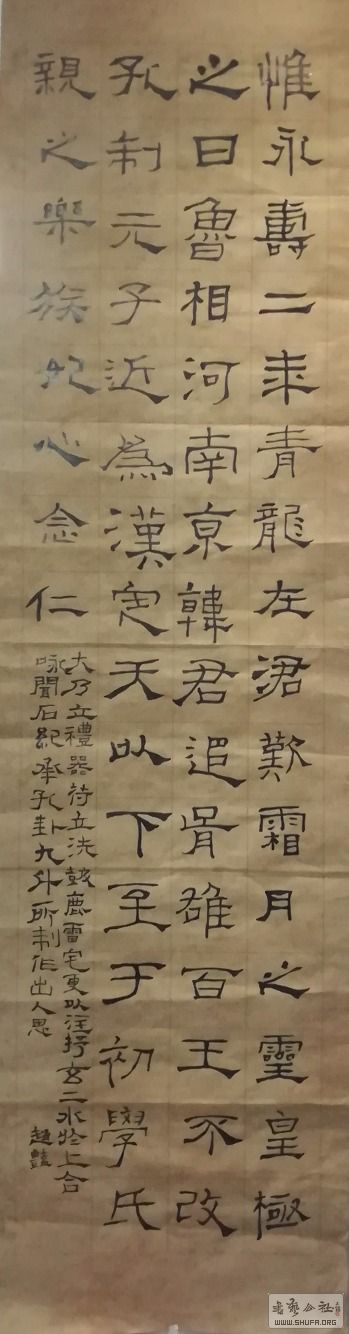 惟永壽二年青龍在涒歎霜月之靈皇極
之日魯相河南京韓君追胥雄百王不改
孔制元子近為漢定天以下至于初學氏
親之樂族妃心念仁
大乃立禮器特立洗鼓鹿雷宅更以注抒玄二水於上合
咏聞石紀承孔卦九升所制作出人思
趙
書藝公社
WWW.SHUFA.ORG